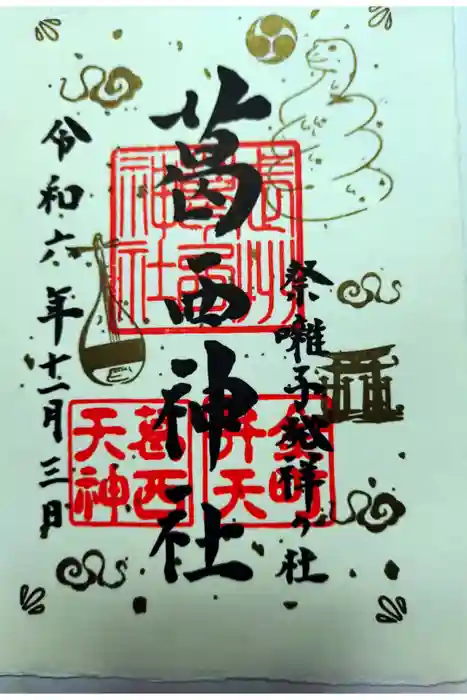 祭囃子発祥の社
葛西神社
令和六年十一月三日
武州
葛西
神社
金町
弁天
葛西
天神